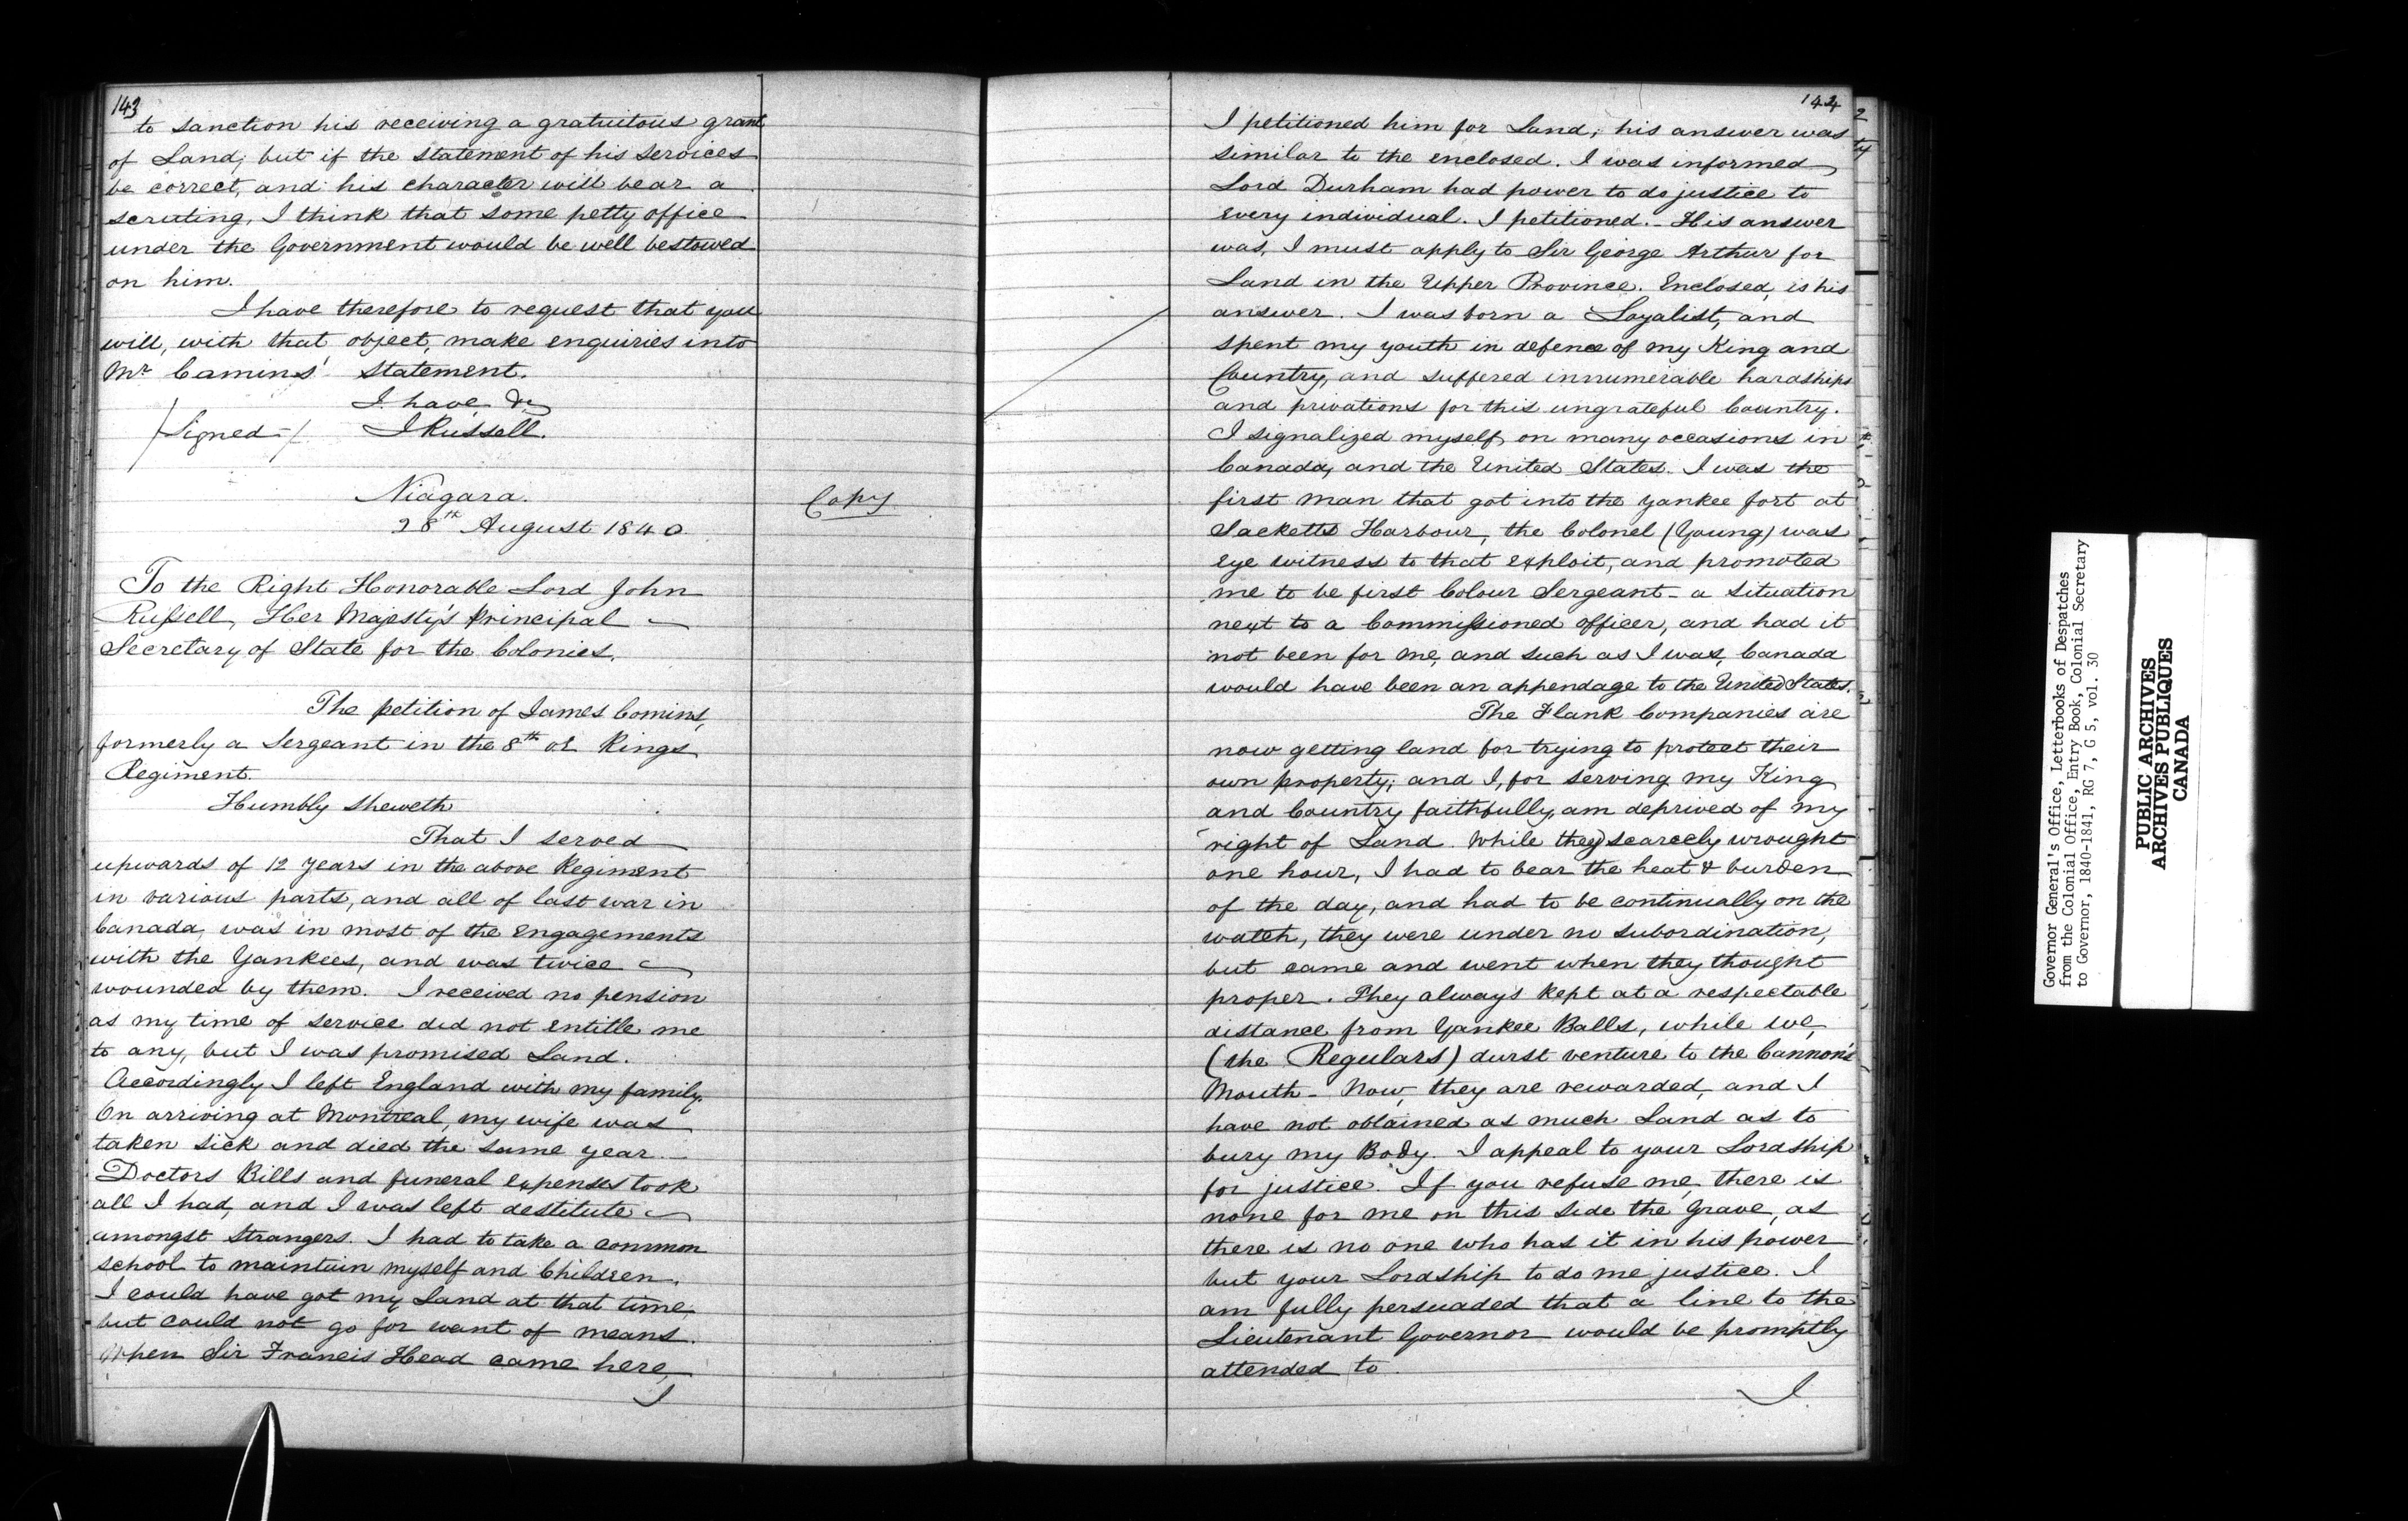 143
to sanction his receiving a gratuitous grant
of Land; but if the statement of his services
be correct, and his character will bear a
scruting, I think that some petty office
under the Government would be well bestowed
on him.
I have therefore to request that you
will, with that object, make enquiries into
Mr Camins' statement.
I have &c
/Signed/ J Russell.
Niagara.
28th August 1840.
Copy
To the Right Honorable Lord John
Russell, Her Majesty's Principal
Secretary of State for the Colonies.
The petition of James Comins,
formerly a Sergeant in the 8th or Kings
Regiment.
Humbly sheweth
That I served
upwards of 12 years in the above Regiment
in various parts, and all of last war in
Canada, was in most of the engagements
with the Yankees, and was twice
wounded by them. I received no pension
as my time of service did not entitle me
to any, but I was promised Land.
Accordingly I left England with my family.
On arriving at Montreal, my wife was
taken sick and died the same year.
Doctors Bills and funeral expenses took
all I had, and I was left destitute
amongst strangers. I had to take a common
school to maintain myself and Children.
I could have got my Land at that time,
but could not go for want of means.
When Sir Francis Head came here,
I
144
I petitioned him for Land; his answer was
similar to the enclosed. I was informed
Lord Durham had power to do justice to
every individual. I petitioned. His answer
was, I must apply to Sir George Arthur for
Land in the Upper Province. Enclosed, is his
answer. I was born a Loyalist, and
spent my youth in defence of my King and
Country, and suffered innumerable hardships
and privations for this ungrateful Country.
I signalized myself on many occasions in
Canada, and the United States. I was the
first man that got into the Yankee fort at
Sacketts Harbour, the Colonel (Young) was
eye witness to that exploit, and promoted
me to be first Colour Sergeant - a situation
next to a Commissioned officer, and had it
not been for me, and such as I was, Canada
would have been an appendage to the United States.
The Flank Companies are
now getting land for trying to protect their
own property; and I, for serving my King
and Country faithfully, am deprived of my
right of Land. While they scarcely wrought
one hour, I had to bear the heat & burden
of the day, and had to be continually on the
watch, they were under no subordination,
but came and went when they thought
proper. They always kept at a respectable
distance from Yankee Balls, while we,
(the Regulars) durst venture to the Cannon's
Mouth - Now, they are rewarded, and I
have not obtained as much Land as to
bury my Body. I appeal to your Lordship
for justice. If you refuse me, there is
none for me on this side the Grave, as
there is no one who has it in his power
but your Lordship to do me justice. I
am fully persuaded that a line to the
Lieutenant Governor would be promptly
attended to.
I
Governor General's Office, Letterbooks of Despatches
from the Colonial Office, Entry Book, Colonial Secretary
to Governor, 1840-1841, RG 7, G 5, vol. 30
PUBLIC ARCHIVES
ARCHIVES PUBLIQUES
CANADA